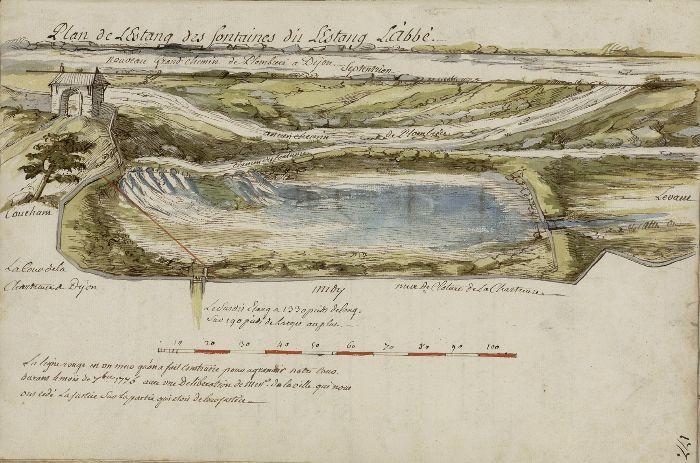 Plan de L'Estang des fontaines dit L'Estang L'abbé.
nouveau grand chemin de Plombiere a Dijon. Septentrion
ancien chemin de Plombiere
Couchant
Levant
La Cour de la
Chartreuse de Dijon
midy
mur de Cloture de La Chartreuse
Le Susdit Etang a 1330 pieds de long.
Sur 190 pieds de Large au plus.
10 20 30 40 50 60 70 80 90 100
La ligne rouge est un mur qu'on a fait construire pour agrandir notre
durant le mois de 7bre 1776 avec une Deliberation de Mrs. de la ville qui nous
ont cedé La Justice Sur La partie qui etoit de leur Justice
177